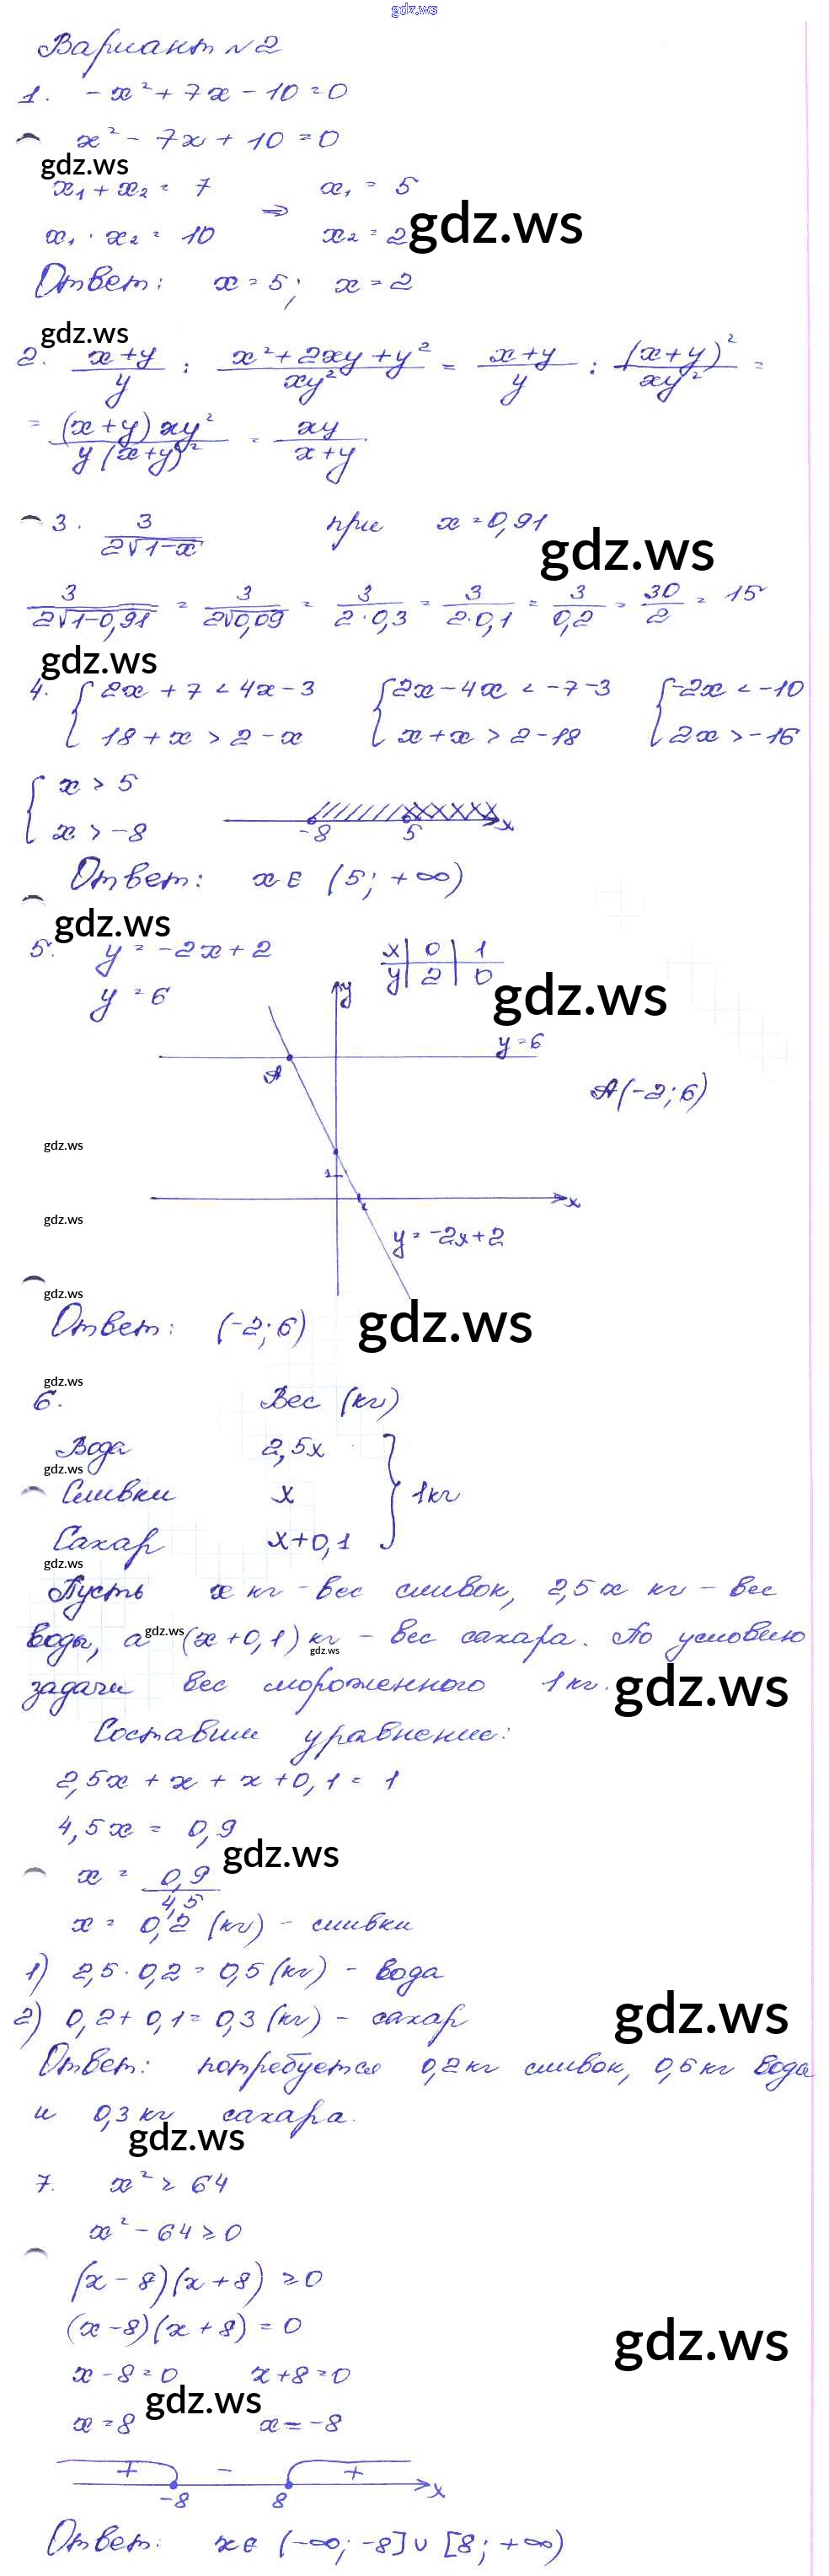 gdz.ws
Вариант №2
1. -x² + 7x - 10 = 0
x² - 7x + 10 = 0
gdz.ws
x₁ + x₂ = 7 ⇒ x₁ = 5
x₁ · x₂ = 10 x₂ = 2
gdz.ws
Ответ: x = 5; x = 2
gdz.ws
2. (x+y)/y : (x²+2xy+y²)/(xy²) = (x+y)/y : (x+y)²/(xy²) =
= (x+y)xy²/(y(x+y)²) = xy/(x+y)
3. 3/(2√1-x) при x = 0,91
gdz.ws
3/(2√1-0,91) = 3/(2√0,09) = 3/(2·0,3) = 3/(2·0,1) = 3/(0,2) = 30/2 = 15
gdz.ws
4. { 2x + 7 < 4x - 3 { 2x - 4x < -7 - 3 { -2x < -10
{ 18 + x > 2 - x { x + x > 2 - 18 { 2x > -16
{ x > 5
{ x > -8
-8 5 x
Ответ: x ∈ (5; +∞)
gdz.ws
5. y = -2x + 2 x | 0 | 1
y = 6 y | 2 | 0
gdz.ws
y
y = 6
A
A(-2; 6)
gdz.ws
1
1
x
gdz.ws
y = -2x + 2
gdz.ws
Ответ: (-2; 6)
gdz.ws
gdz.ws
6. Вес (кг)
Вода 2,5x
gdz.ws
Сливки x } 1кг
Сахар x+0,1
gdz.ws
Пусть x кг - вес сливок, 2,5x кг - вес
воды, а (x + 0,1) кг - вес сахара. По условию
gdz.ws
gdz.ws
задачи вес мороженного 1кг.
gdz.ws
Составим уравнение:
2,5x + x + x + 0,1 = 1
4,5x = 0,9
gdz.ws
x = 0,9/4,5
x = 0,2 (кг) - сливки
1) 2,5 · 0,2 = 0,5 (кг) - вода
2) 0,2 + 0,1 = 0,3 (кг) - сахар
gdz.ws
Ответ: потребуется 0,2кг сливок, 0,5кг вода
и 0,3 кг сахара.
gdz.ws
7. x² ≥ 64
x² - 64 ≥ 0
(x - 8)(x + 8) ≥ 0
(x - 8)(x + 8) = 0
gdz.ws
x - 8 = 0 x + 8 = 0
gdz.ws
x = 8 x = -8
+ - +
-8 8 x
Ответ: x ∈ (-∞; -8] ∪ [8; +∞)